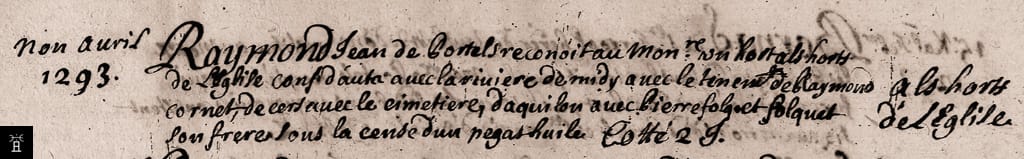 non avril
1293.
Raymond Jean de bortels reconoit au Mon.re un hort als horts
de l'Eglise conf.d d'auta avec la riviere de midy avec le tenem.t de Raymond
cornet, de cers avec le cimetiere, d'aquilon avec pierre folq. et folquet
son frere sous la cense d'un pegas huile Cotté 2 g.
als horts
de l'Eglise.